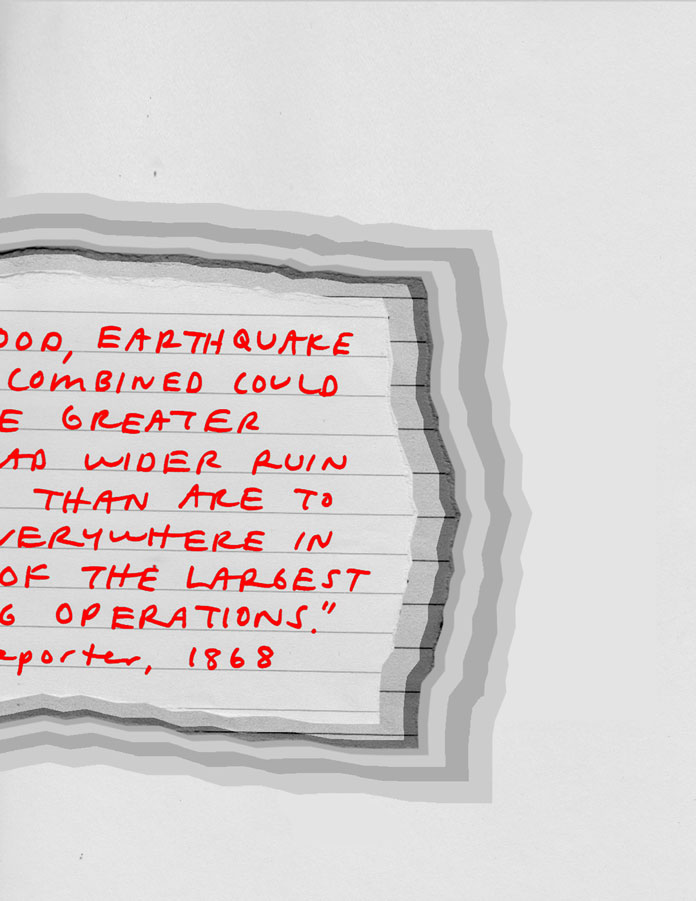 OOD, EARTHQUAKE
COMBINED COULD
E GREATER
AD WIDER RUIN
THAN ARE TO
VERYWHERE IN
OF THE LARGEST
G OPERATIONS."
eporter, 1868